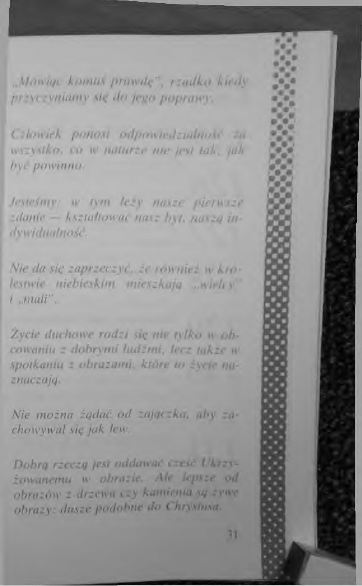 „Mówiąc komuś prawdę”, rzadko kiedy
przyczyniamy się do jego poprawy.
Człowiek ponosi odpowiedzialność za
wszystko, co w naturze nie jest tak, jak
być powinno.
Jesteśmy: w tym leży nasze pierwsze
zdanie — kształtować nasz byt, naszą in-
dywidualność.
Nie da się zaprzeczyć, że również w kró-
lestwie niebieskim mieszkają „wielcy”
i „mali”.
Życie duchowe rodzi się nie tylko w ob-
cowaniu z dobrymi ludźmi, lecz także w
spotkaniu z obrazami, które to życie na-
znaczają.
Nie można żądać od zajączka, aby za-
chowywał się jak lew.
Dobrą rzeczą jest oddawać cześć Ukrzy-
żowanemu w obrazie. Ale lepsze od
obrazów z drzewa czy kamienia są żywe
obrazy: dusze podobne do Chrystusa.
31